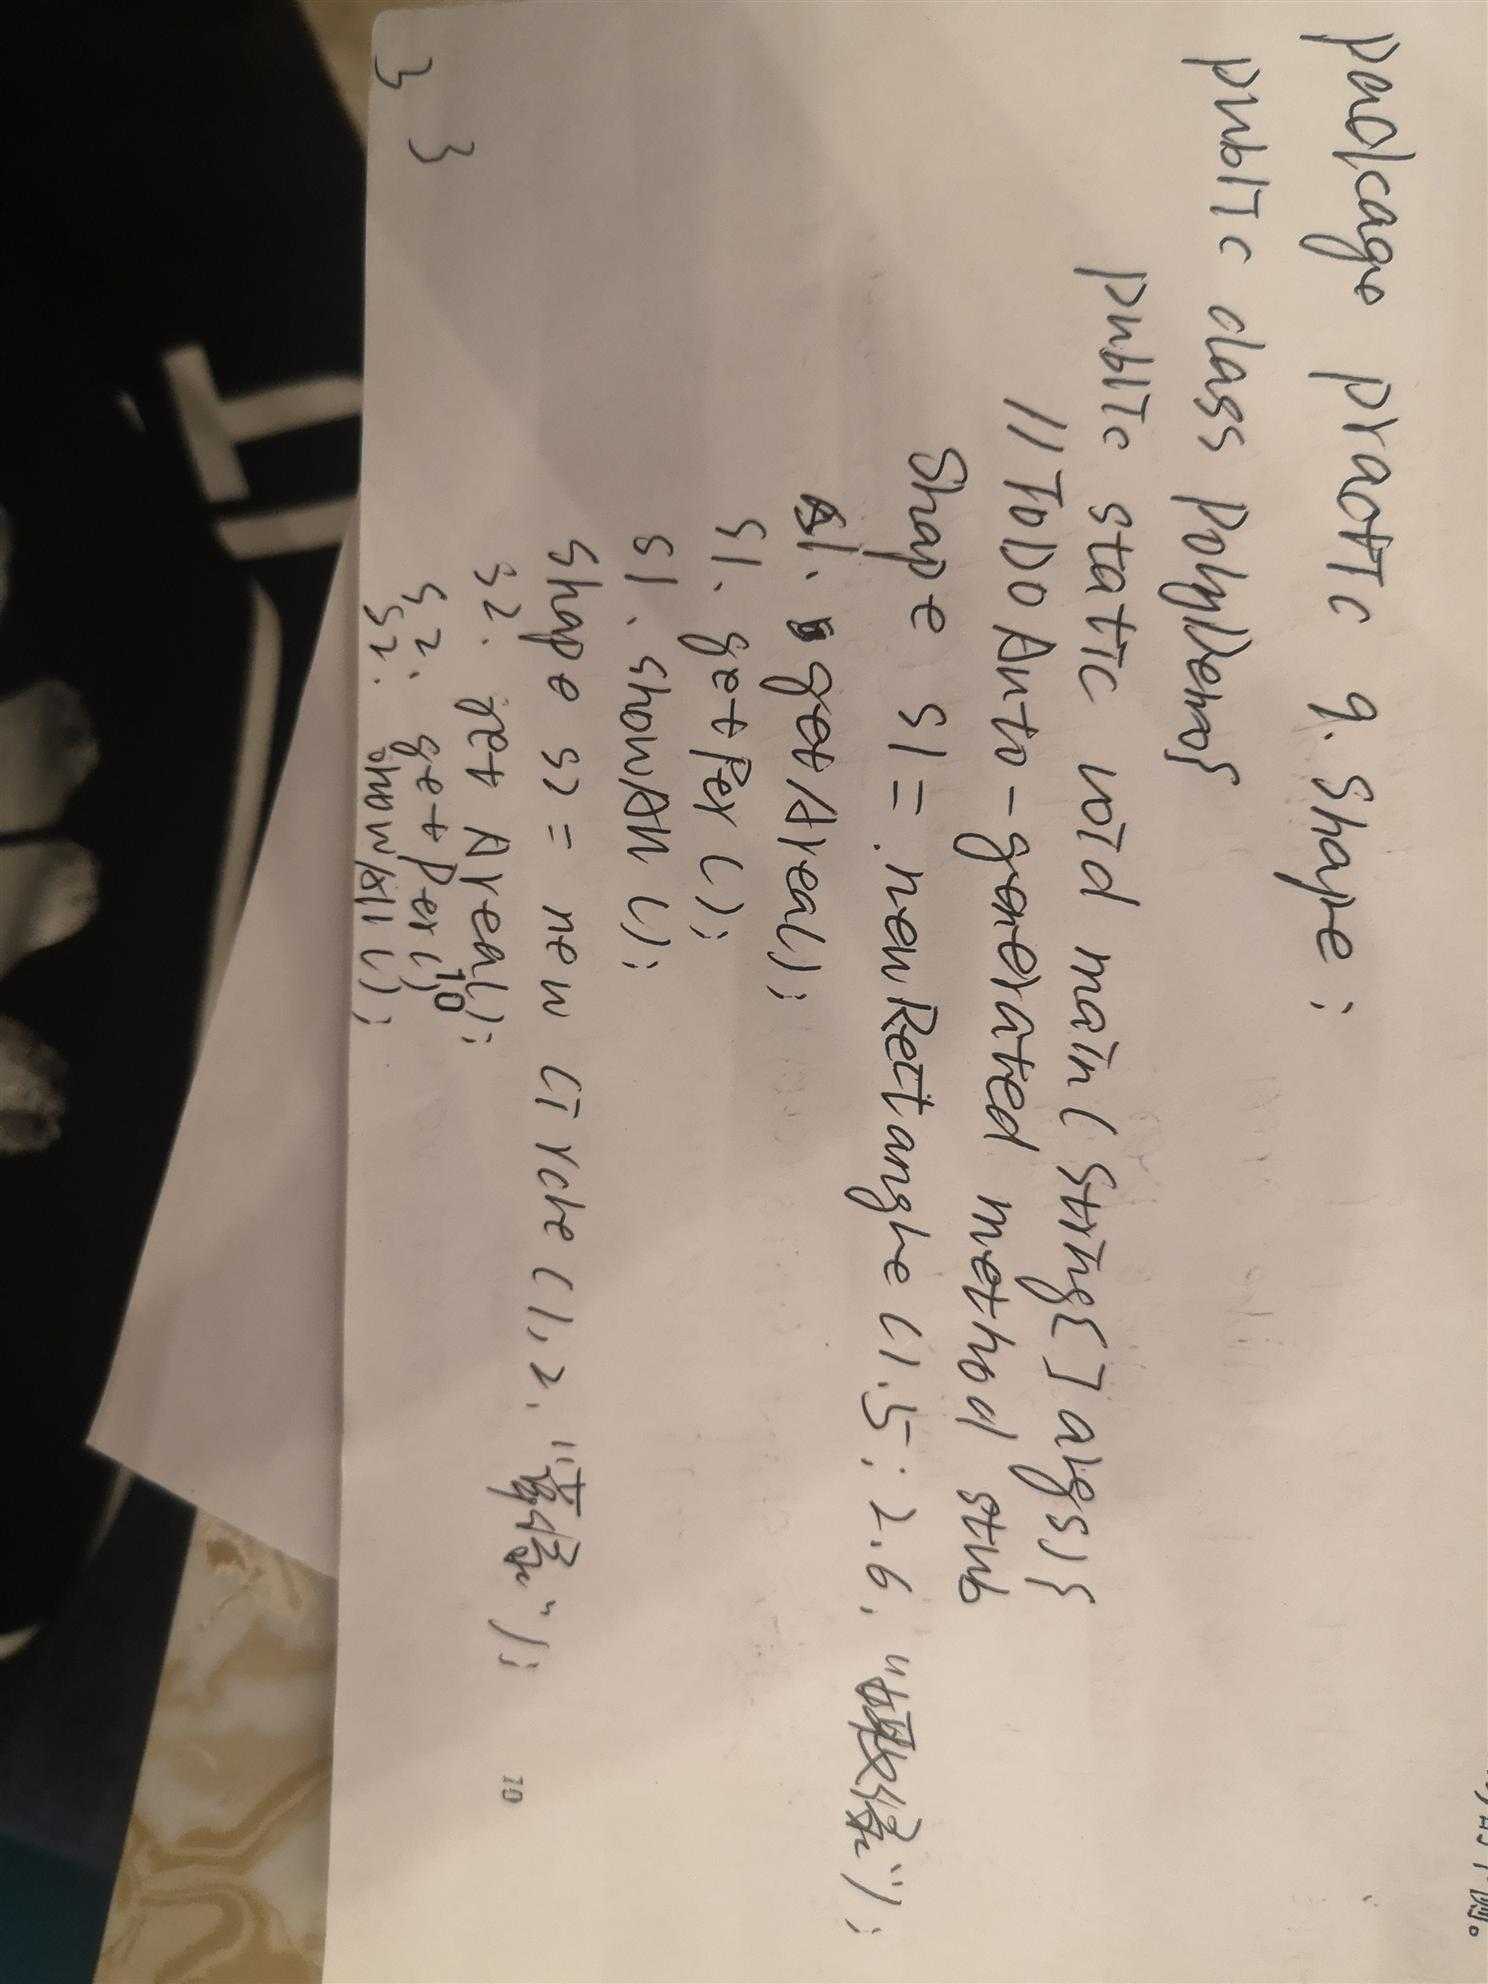 package practic 9.shape;
public class PolyDemo{
public static void main(String[] args){
//TODO Auto-generated method stub
Shape s1 = new Rectangle(1.5; 2.6,
s1.getArea();
s1.getPer();
s1.showAll();
Shape s2 = new Circle(1,2.
s2. get Area();
s2. get Per();
s2. showAll();
}
}
10
10